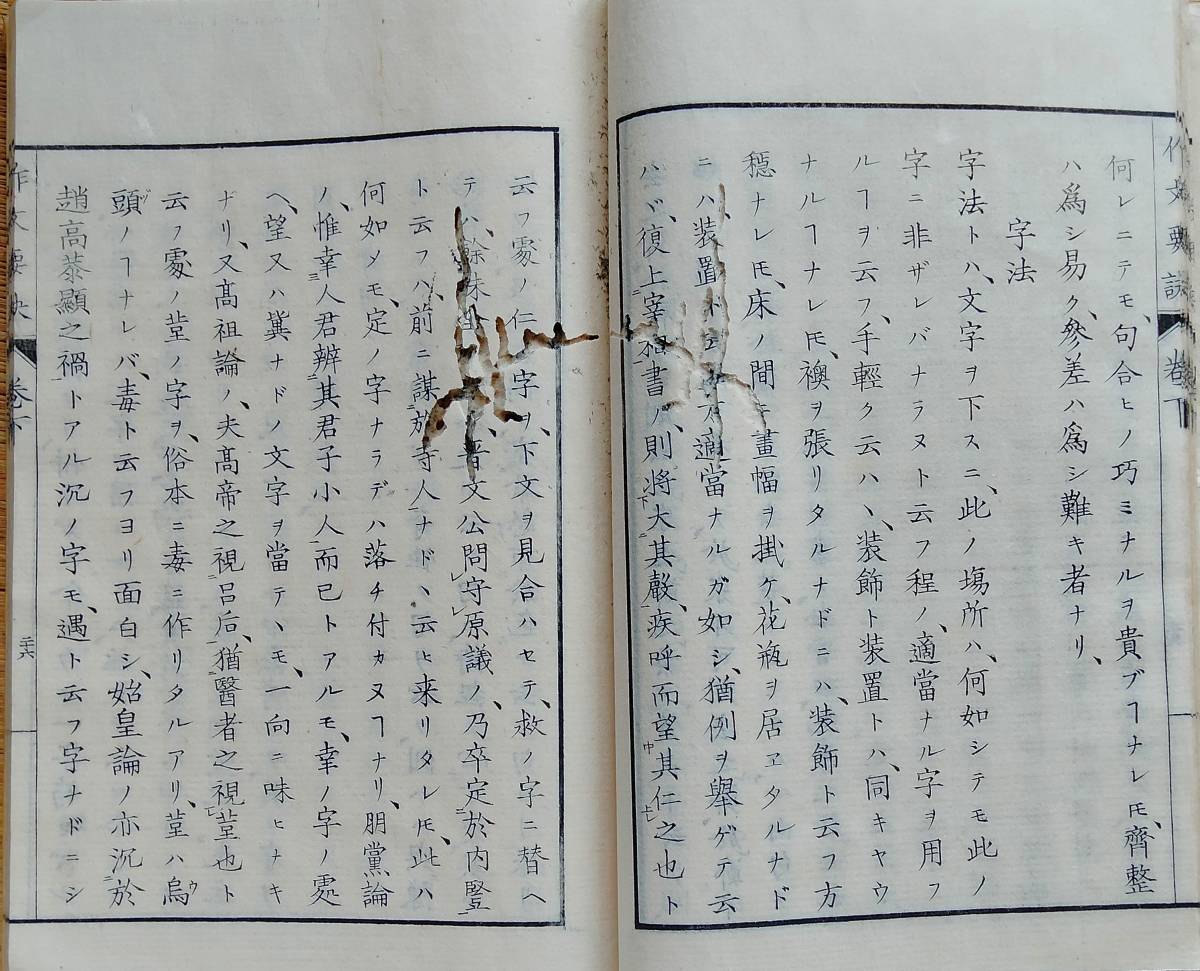 何レニテモ、句合ヒノ巧ミナルヲ貴ブヿナレ𪜈、齊整
ハ爲シ易ク、參差ハ爲シ難キ者ナリ、
字法
字法トハ、文字ヲ下スニ、此ノ塲所ハ、何如シテモ此ノ
字ニ非ザレバナラヌト云フ程ノ、適當ナル字ヲ用フ
ルヿヲ云フ、手輕ク云ハヽ、装飾ト装置トハ、同キヤウ
ナルヿナレ𪜈、襖ヲ張リタルナドニハ、装飾ト云フ方
穩ナレ𪜈、床ノ間ニ畫幅ヲ掛ケ、花瓶ヲ居ヱタルナド
ニハ、装置ト適當ナルガ如シ、猶例ヲ擧ゲテ云
ハヾ、復上宰相書ノ、則將大其聲、疾呼而望其仁之也ト
云フ處ノ仁字ヲ、下文ヲ見合ハセテ、救ノ字ニ替ヘ
テハ、餘味、晋文公問守原議ノ、乃卒定於内豎
ト云フハ、前ニ謀於寺人ナドヽ云ヒ来リタレ𪜈、此ハ
何如メモ、定ノ字ナラデハ落チ付カヌヿナリ、朋黨論
ノ、惟幸人君辨其君子小人而已トアルモ、幸ノ字ノ處
ヘ、望又ハ冀ナドノ文字ヲ當テヽモ、一向ニ味ヒナキ
ナリ、又髙祖論ノ、夫髙帝之視呂后、猶醫者之視菫也ト
云フ處ノ菫ノ字ヲ、俗本ニ毒ニ作リタルアリ、菫ハ烏
頭ノヿナレバ、毒ト云フヨリ面白シ、始皇論ノ亦沉於
趙高恭顯之禍トアル沉ノ字モ、遇ト云フ字ナドニシ
作文要訣
卷下
卷下